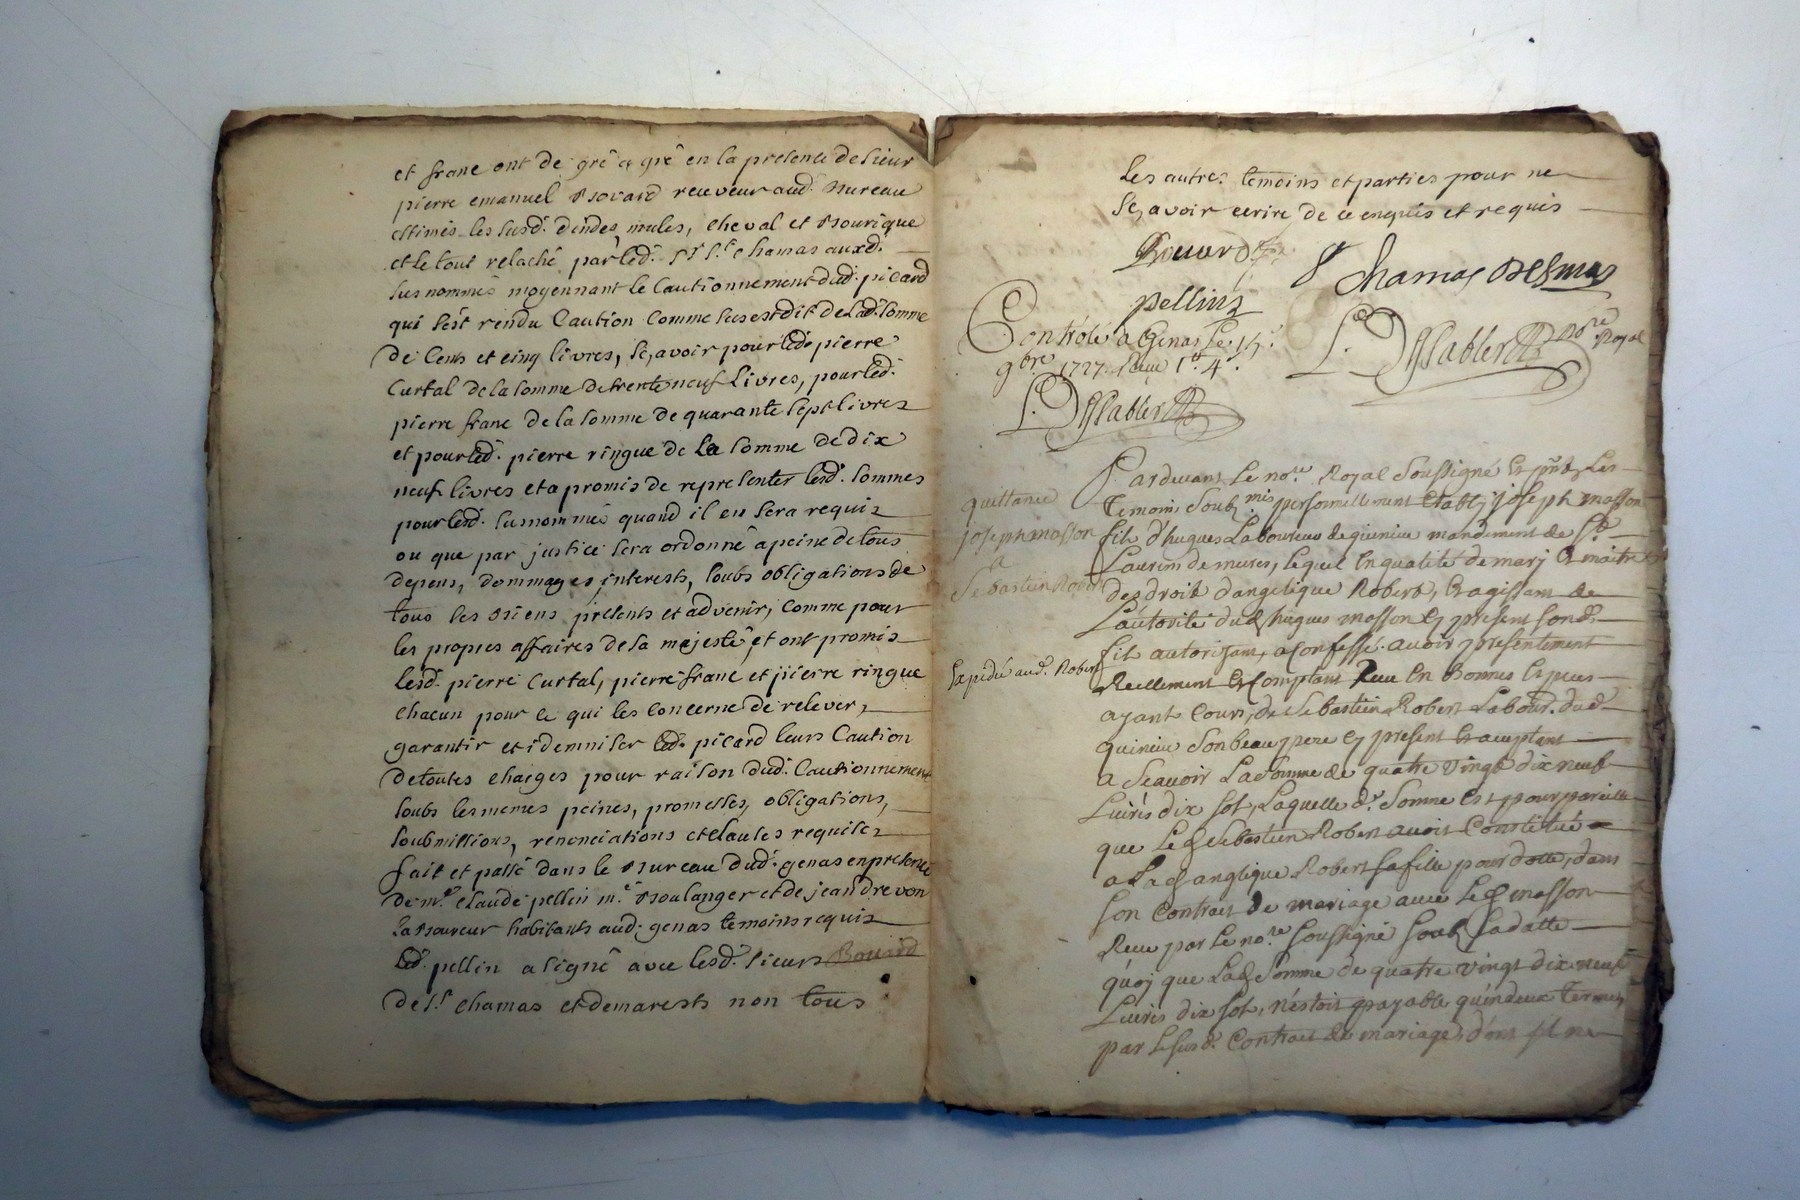 et franc ont de gré a gré en la presence de sieur
pierre emanuel Bovard receveur aud. Bureau
estimés les susd. deindes mules, cheval et Bourique
et le tout relaché par led. Sr St. chamas auxd.
sus nommés moyennant le Cautionnement dud. picard
qui s'est rendu Caution comme sus est dit de lad. somme
de Cens et cinq livres, sçavoir pour led. pierre
Curtal de la somme de trente neuf Livres, pour led.
pierre franc de la somme de quarante sept livres
et pour led. pierre ringue de la somme de dix
neuf livres et a promis de representer lesd. sommes
pour lesd. sunommés quand il en sera requis
ou que par justice sera ordonné a peine de tous
depens, dommages, interests, soubs obligations de
tous ses Biens presents et advenir, comme pour
les propres affaires de sa majesté, et ont promis
lesd. pierre Curtal, pierre franc et pierre ringue
chacun pour ce qui les concerne de relever,
garantir et idemniser led. picard leurs Caution
de toutes charges pour raison dud. Cautionnement
soubs les memes peines, promesses, obligations,
soubmissions, renonciations et clauses requises
fait et passé dans le Bureau dud. genas en presence
de Mre. claude pellin me. Boulanger et de jean drevon
Laboureur habitants aud. genas temoins requis
led. pellin a signé avec lesd. sieurs Bovard
de St. chamas et demarests non tous
les autres temoins et parties pour ne
sçavoir ecrire de ce enquis et requis
Bouard
St chamas Desmares
pellins
Controlé a Genas le 15.
9bre 1727. Reçu
L. Dissablers Nore Royal
L. Dissablers
Pardevant Le nore. Royal soussigné Et pnts Les
Temoins soubsmis personnellement Etably joseph masson
fils d'hugues Laboureur de quinieu mandement de St.
Laurim de mures, lequel En qualité de mary Et maitre
des droits d'angelique Robert, Et agissant de
L'autorité dud hugues masson Cy present sond.
fils autorisant, a Confessé avoir presentement
Reellement Et Comptant Reçu En Bonnes Especes
ayant Cours, de sebastien Robert Labour. dud
quinieu son beau pere Cy present Et acceptant
a sçavoir La somme de quatre vingt dix neuf
Livres dix sols, Laquelle de. somme Est pour pareille
que Led sebastien Robert avoit Constitué
a Lad angelique Robert sa fille pour dotte, dans
son Contrat de mariage avec Led masson
Reçu par Le nore. soussigné soubs sa datte
quoy que Lad somme de quatre vingt dix neuf
Livres dix sols, n'estoit payable qu'en deux termes
par Le susd. Contrat de mariage, dont il ne
quittance
joseph masson
a
Sebastien Robert
Expedié aud. Robert